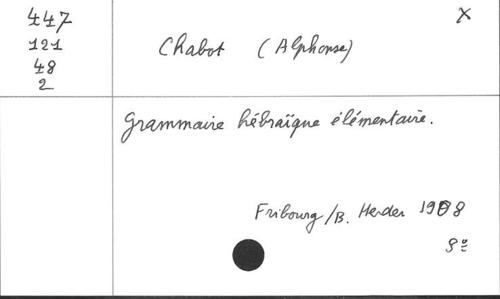 447
121
48
2
X
Chabot (Alphonse)
Grammaire hébraïque élémentaire.
Fribourg/B. Herder 1908
8º